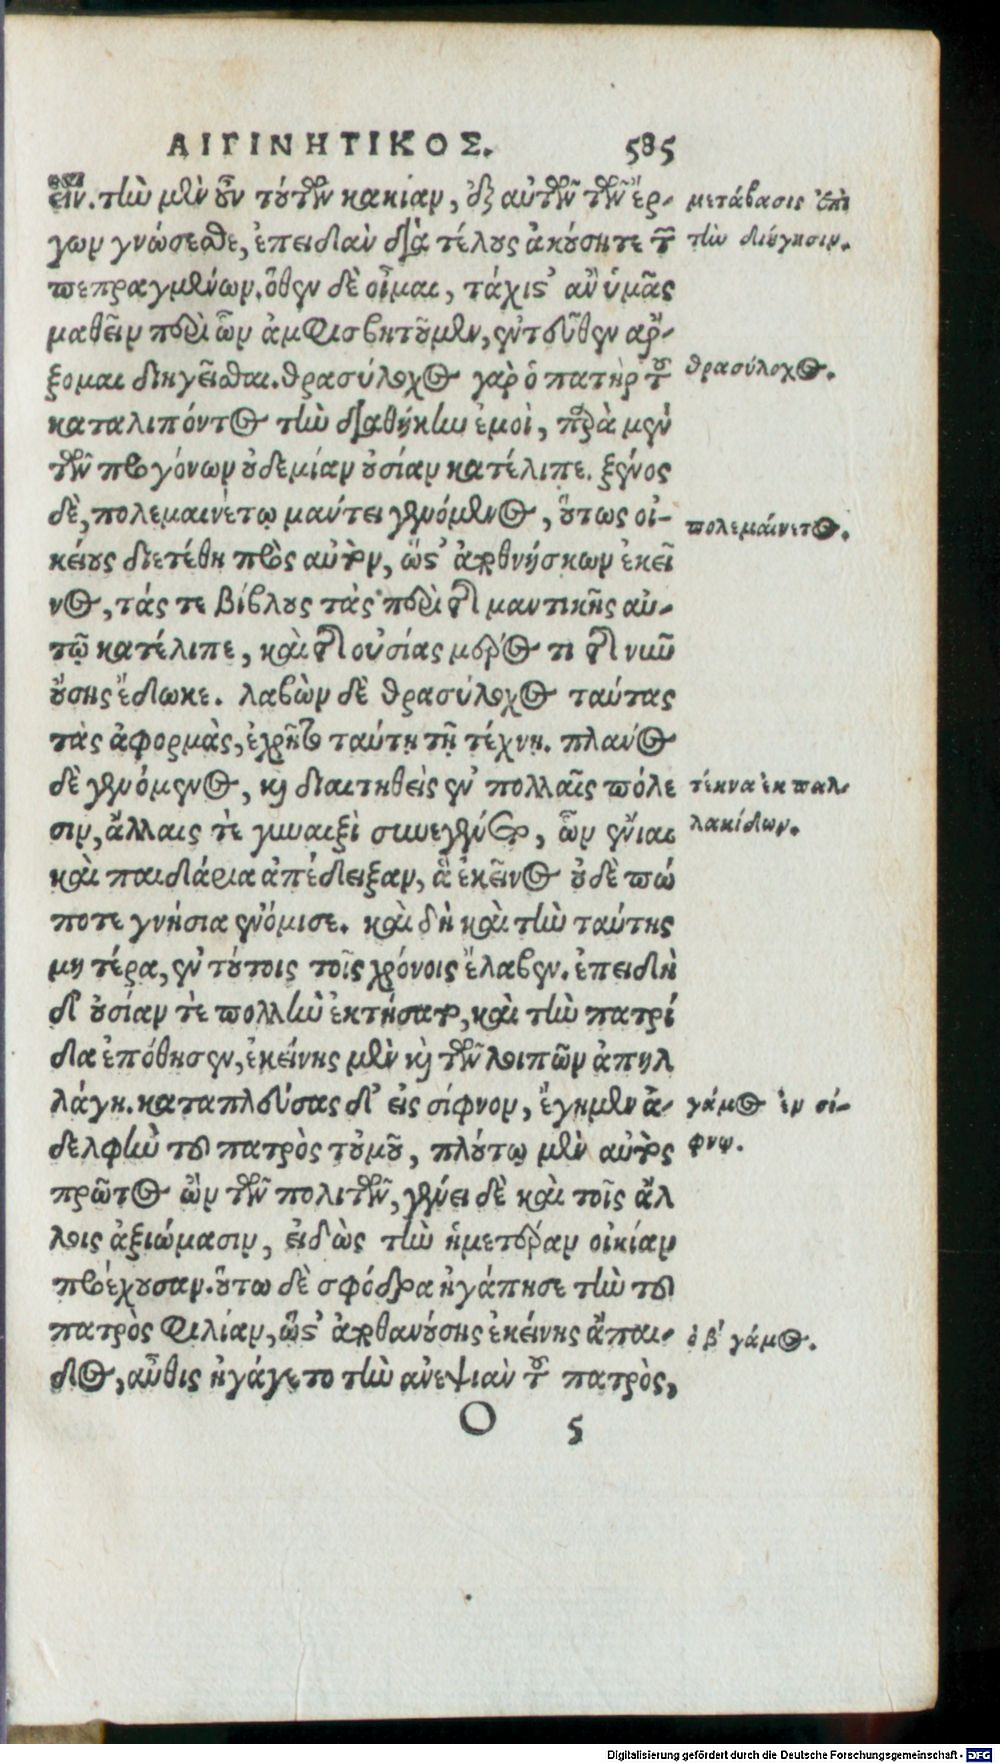 ΑΙΓΙΝΗΤΙΚΟΣ. 585
εῖν. τὴν μὲν οὖν τούτων κακίαν, ἐξ αὐτῶν τῶν ἔρ-
γων γνώσεσθε, ἐπειδὰν διὰ τέλους ἀκούσητε τῶν
πεπραγμένων. ὅθεν δὲ οἶμαι, τάχιστ' ἂν ὑμᾶς
μαθεῖν περὶ ὧν ἀμφισβητοῦμεν, ἐντεῦθεν ἄρ-
ξομαι διηγεῖσθαι. θρασύλοχος γὰρ ὁ πατὴρ τοῦ
καταλιπόντος τὴν διαθήκην ἐμοὶ, παρὰ μὲν
τῶν προγόνων οὐδεμίαν οὐσίαν κατέλιπε. ξένος
δὲ, πολεμαινέτῳ μάντει γενόμενος, οὕτως οἰ-
κείως διετέθη πρὸς αὐτὸν, ὥστ' ἀποθνήσκων ἐκεῖ
νος, τάς τε βίβλους τὰς περὶ τῆς μαντικῆς αὐ-
τῷ κατέλιπε, καὶ τῆς οὐσίας μέρος τι τῆς νῦν
οὔσης ἔδωκε. λαβὼν δὲ θρασύλοχος ταύτας
τὰς ἀφορμὰς, ἐχρῆτο ταύτῃ τῇ τέχνῃ. πλάνος
δὲ γενόμενος, καὶ διαιτηθεὶς ἐν πολλαῖς πόλε
σιν, ἄλλαις τὲ γυναιξὶ συνεγένετο, ὧν ἔνιαι
καὶ παιδάρια ἀπέδειξαν, ἃ ἐκεῖνος οὐδὲ πώ
ποτε γνήσια ἐνόμισε. καὶ δὴ καὶ τὴν ταύτης
μητέρα, ἐν τούτοις τοῖς χρόνοις ἔλαβεν. ἐπειδὴ
δ' οὐσίαν τὲ πολλὴν ἐκτήσατο, καὶ τὴν πατρί
δα ἐπόθησεν, ἐκείνης μὲν καὶ τῶν λοιπῶν ἀπηλ
λάγη. καταπλεύσας δ' εἰς σίφνον, ἔγημεν ἀ-
δελφὴν τοῦ πατρὸς τοὐμοῦ, πλούτῳ μὲν αὐτὸς
πρῶτος ὢν τῶν πολιτῶν, γένει δὲ καὶ τοῖς ἄλ
λοις ἀξιώμασιν, εἰδὼς τὴν ἡμετέραν οἰκίαν
προέχουσαν. οὕτω δὲ σφόδρα ἠγάπησε τὴν τοῦ
πατρὸς φιλίαν, ὥστ' ἀποθανούσης ἐκείνης ἄπαι-
δος, αὖθις ἠγάγετο τὴν ἀνεψιὰν τοῦ πατρὸς,
O 5
μετάβασις ἐπὶ
τὴν διήγησιν.
θρασύλοχος.
πολεμαίνετος.
τέκνα ἐκ παλ-
λακίδων.
γάμος ἐν σί-
φνῳ.
ὁ β' γάμος.
Digitalisierung gefördert durch die Deutsche Forschungsgemeinschaft - DFG